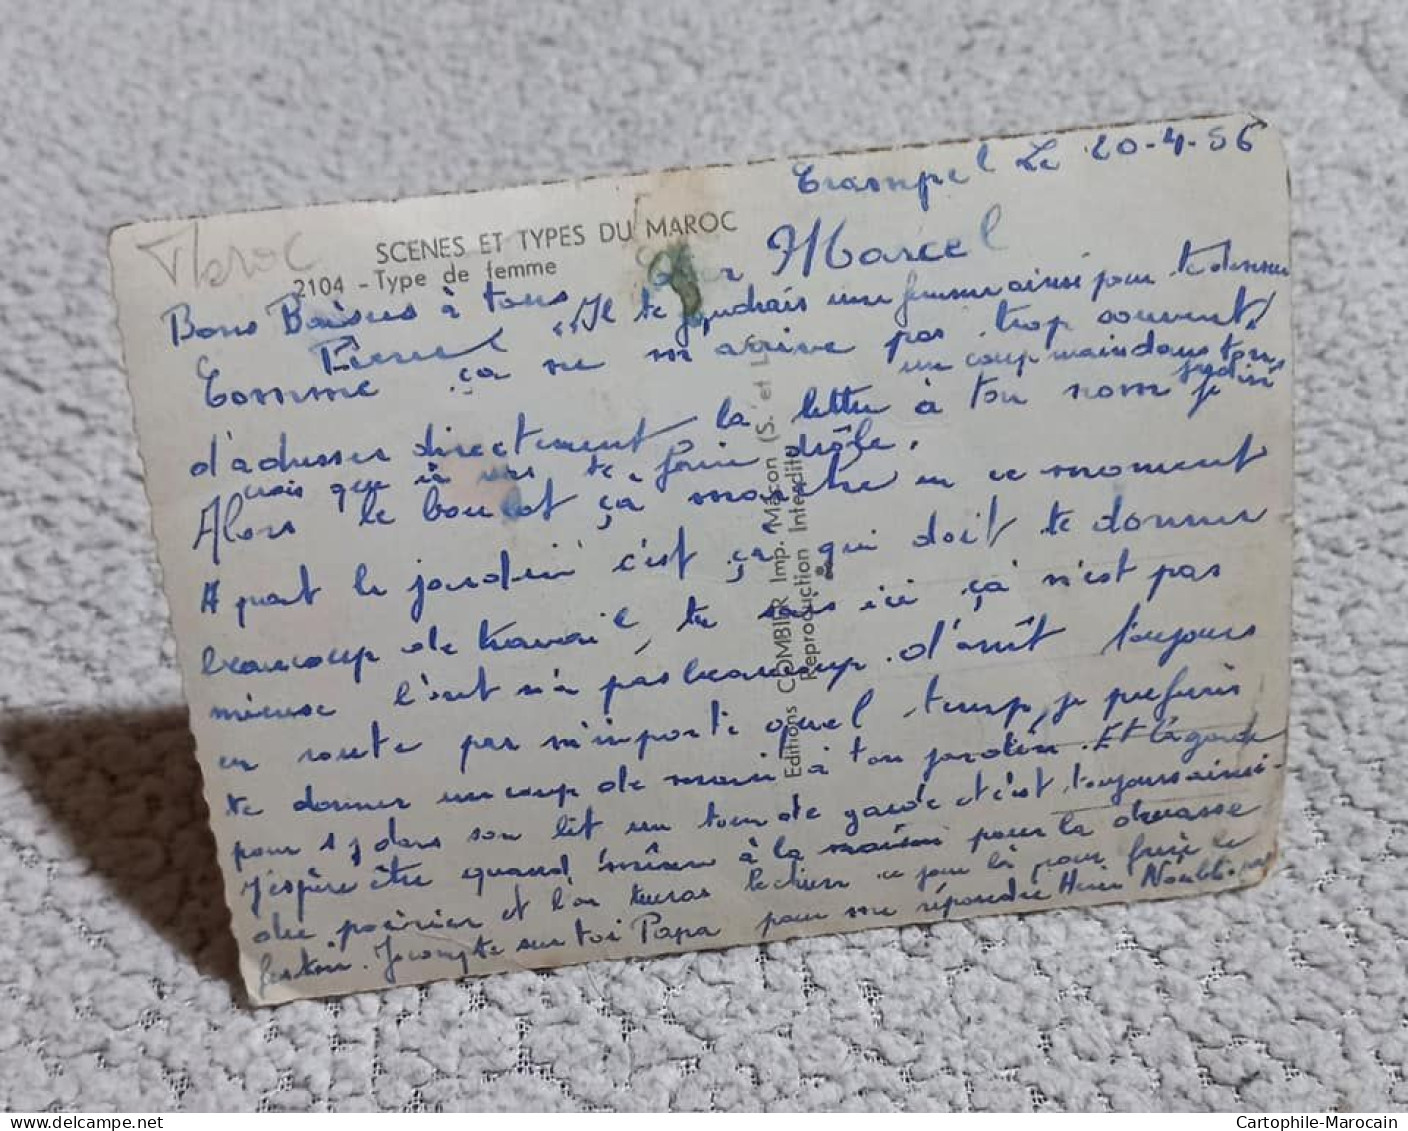 Le 20-4-56
Maroc
SCENES ET TYPES DU MAROC
2104 - Type de femme
Marcel
Bons Baisers à tous
"Il te faudrais une femme ainsi pour te donner
un coup main dans ton jardin
Comme ça ne m'arrive pas trop souvent
d'adresser directement la lettre à ton nom je
vais que ça vas te faire drôle.
Alors le boulot ça marche en ce moment
A part le jardin c'est ça qui doit te donner
beaucoup de travail, tu sais ici ça n'est pas
mieuse l'on n'a pas beaucoup d'arrêt toujours
en route par n'importe quel temps, je preferis
te donner un coup de main à ton jardin. Et la garde
pour 1 j dans son lit un tour de garde et c'est toujours ainsi.
J'espère être quand même à la maison pour la chasse
du et l'on le chien ce jour là pour faire le
festin. Je compte sur toi Papa pour me répondre
Editions COMBIER Imp. Mâcon (S. et L.)
Reproduction Interdite
Cartophile-Marocain